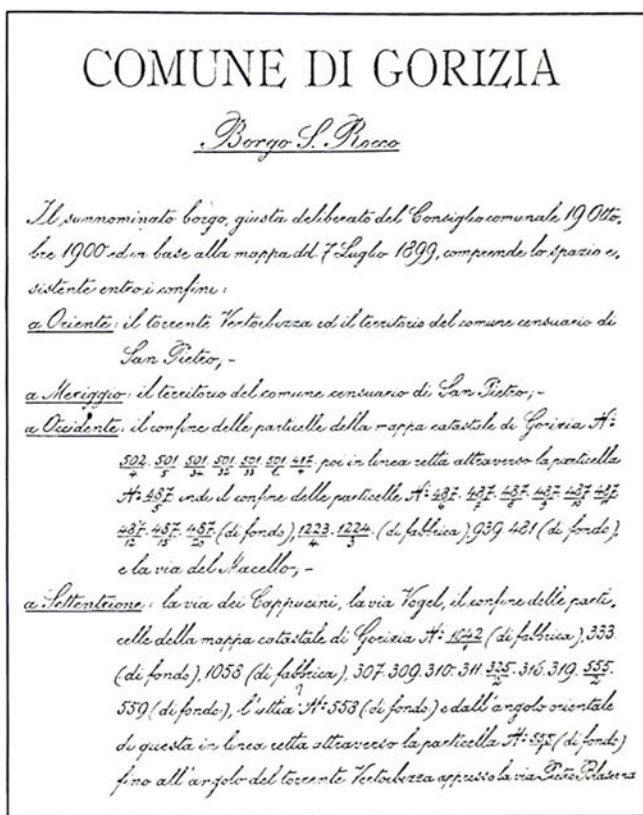 COMUNE DI GORIZIA
Borgo S. Rocco
Il sunnominato borgo, giusta deliberato del Consiglio comunale 19 Otto,
bre 1900 ed in base alla mappa dd. 7 Luglio 1899, comprende lo spazio e,
sistente entro i confini:
a Oriente: il torrente Vertoibizza ed il territorio del comune censuario di
San Pietro,-
a Meriggio: il territorio del comune censuario di San Pietro,-
a Occidente: il confine delle particelle della mappa catastale di Gorizia Nº
502/4. 501/5. 501/34. 501/32. 501/33. 501/6. 487/4. poi in linea retta attraverso la particella
Nº 487/5 indi il confine delle particelle Nº 487/6. 487/7. 487/8. 487/9. 487/10. 487/11
487/12. 487/13. 487/20. (di fondo), 1223/4. 1224/3. (di fabbrica), 939 481 (di fondo),
e la via del Macello,-
a Settentrione: la via dei Cappucini, la via Vogel, il confine delle parti,
celle della mappa catastale di Gorizia Nº 1042 (di fabbrica), 333
(di fondo), 1058 (di fabbrica), 307. 309. 310. 311. 325/2. 316. 319. 555/2.
559 (di fondo), Nº 558 (di fondo) e dall'angolo orientale
di questa in linea retta attraverso la particella Nº (di fondo)
fino all'angolo del torrente Vertoibizza appresso la via Pietro Blaserna